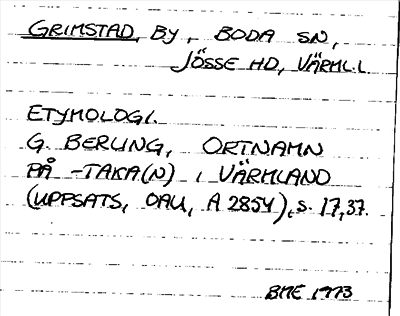 GRIMSTAD, BY, BODA SN,
JÖSSE HD, VÄRML.L
ETYMOLOGI.
G. BERLING, ORTNAMN
PÅ -TAKA(N) I VÄRMLAND
(UPPSATS, OAU, A 2854), s. 17,37.
BME 1973